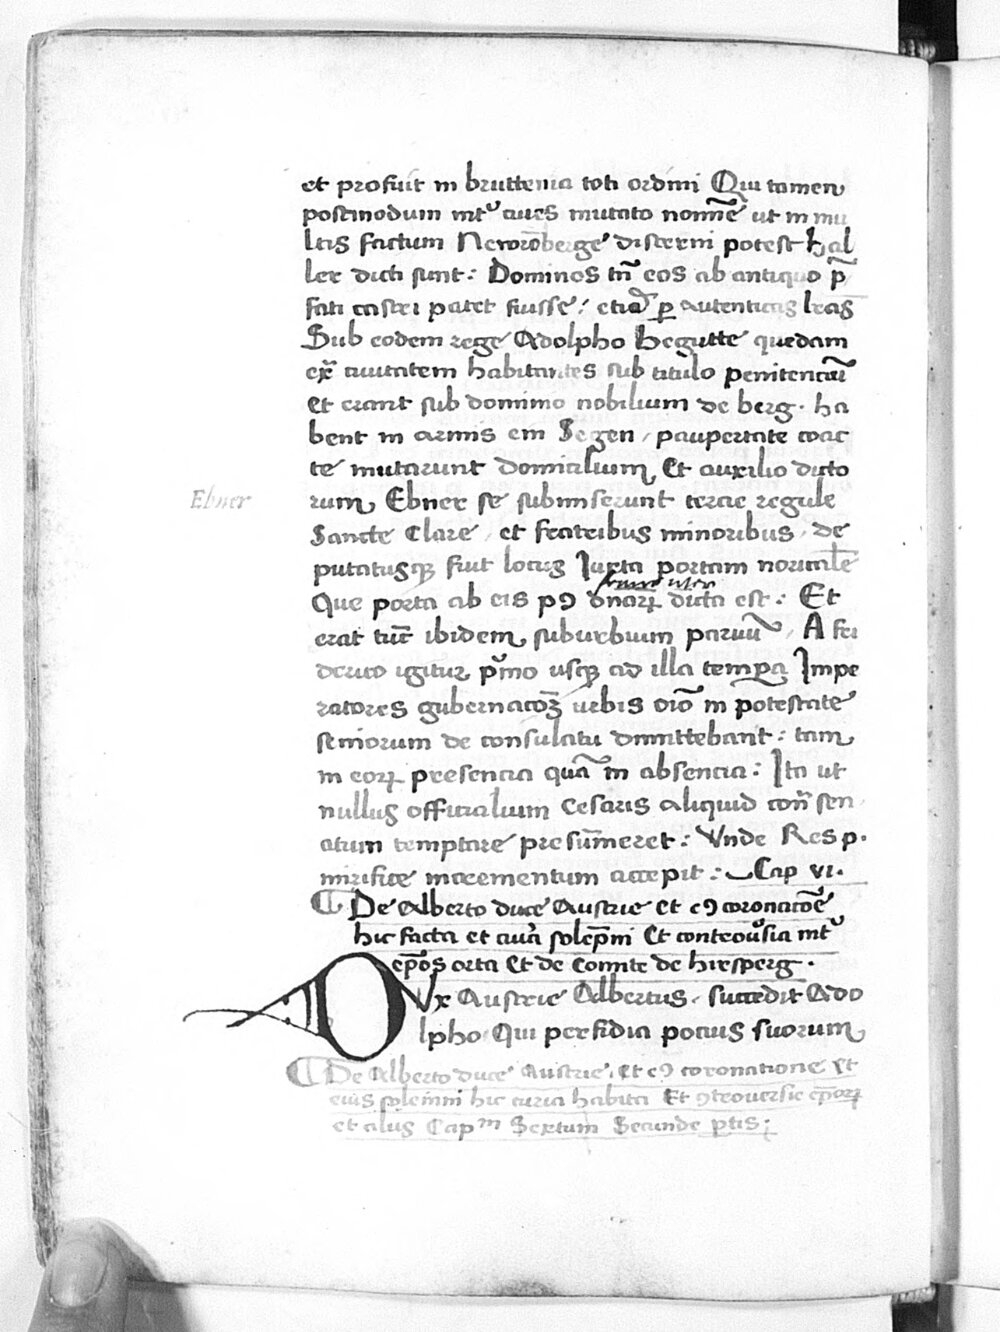 et profuit in bruttenia toti ordini Qui tamen
postmodum int' ciues mutato nomīe ut in mu
ltis factum Neworōberge discerni potest hal
ler dicti sunt : Dominos tn̄ eos ab antiquo p̄
fati castri patet fuisse : etiā ꝑ autenticas lr̄as
Sub eodem rege Adolpho Begutte quedam
ex̄ ciuitatem habitantes sub titulo penitenciū
et erant sub dominio nobilium de berg . ha
bent in armis em Segen , paupertate coac
te mutarunt domicilium Et auxilio dicto
rum Ebner se submiserunt tercie regule
Ebner
Sancte Clare , et fratribus minoribus , de
putatusqꝫ fuit locus Juxta portam
Que porta ab eis pꝯ dnarꝝ dicta est : Et
erat tūc ibidem suburbium paruū , A fri
derico igitur p'mo usqꝫ ad illa tempora Impe
ratores gubernacōꝫ urbis oīo in potestate
seniorum de consulatu dimittebant : tam
in eorꝝ presencia quā in absencia : Ita ut
nullus officialium Cesaris aliquid con̄ sen
atum temptare presūmeret : Vnde Resp.
mirifice incrementum accepit : Cap vi.
De Alberto duce Austrie et eꝯ coronacōe
hic facta et curia solēpni Et controu'sia int'
ep̄os orta Et de Comite de hirsperg .
DVx Austrie Albertus , succedit Ado
lpho Qui perfidia pocius suorum
De Alberto duce Austrie , et eꝯ coronatione et
eius solemni hic curia habita Et ꝯtrouersie ep̄orꝝ
et alijs Capᵐ Sextum Secunde ꝑtis ;